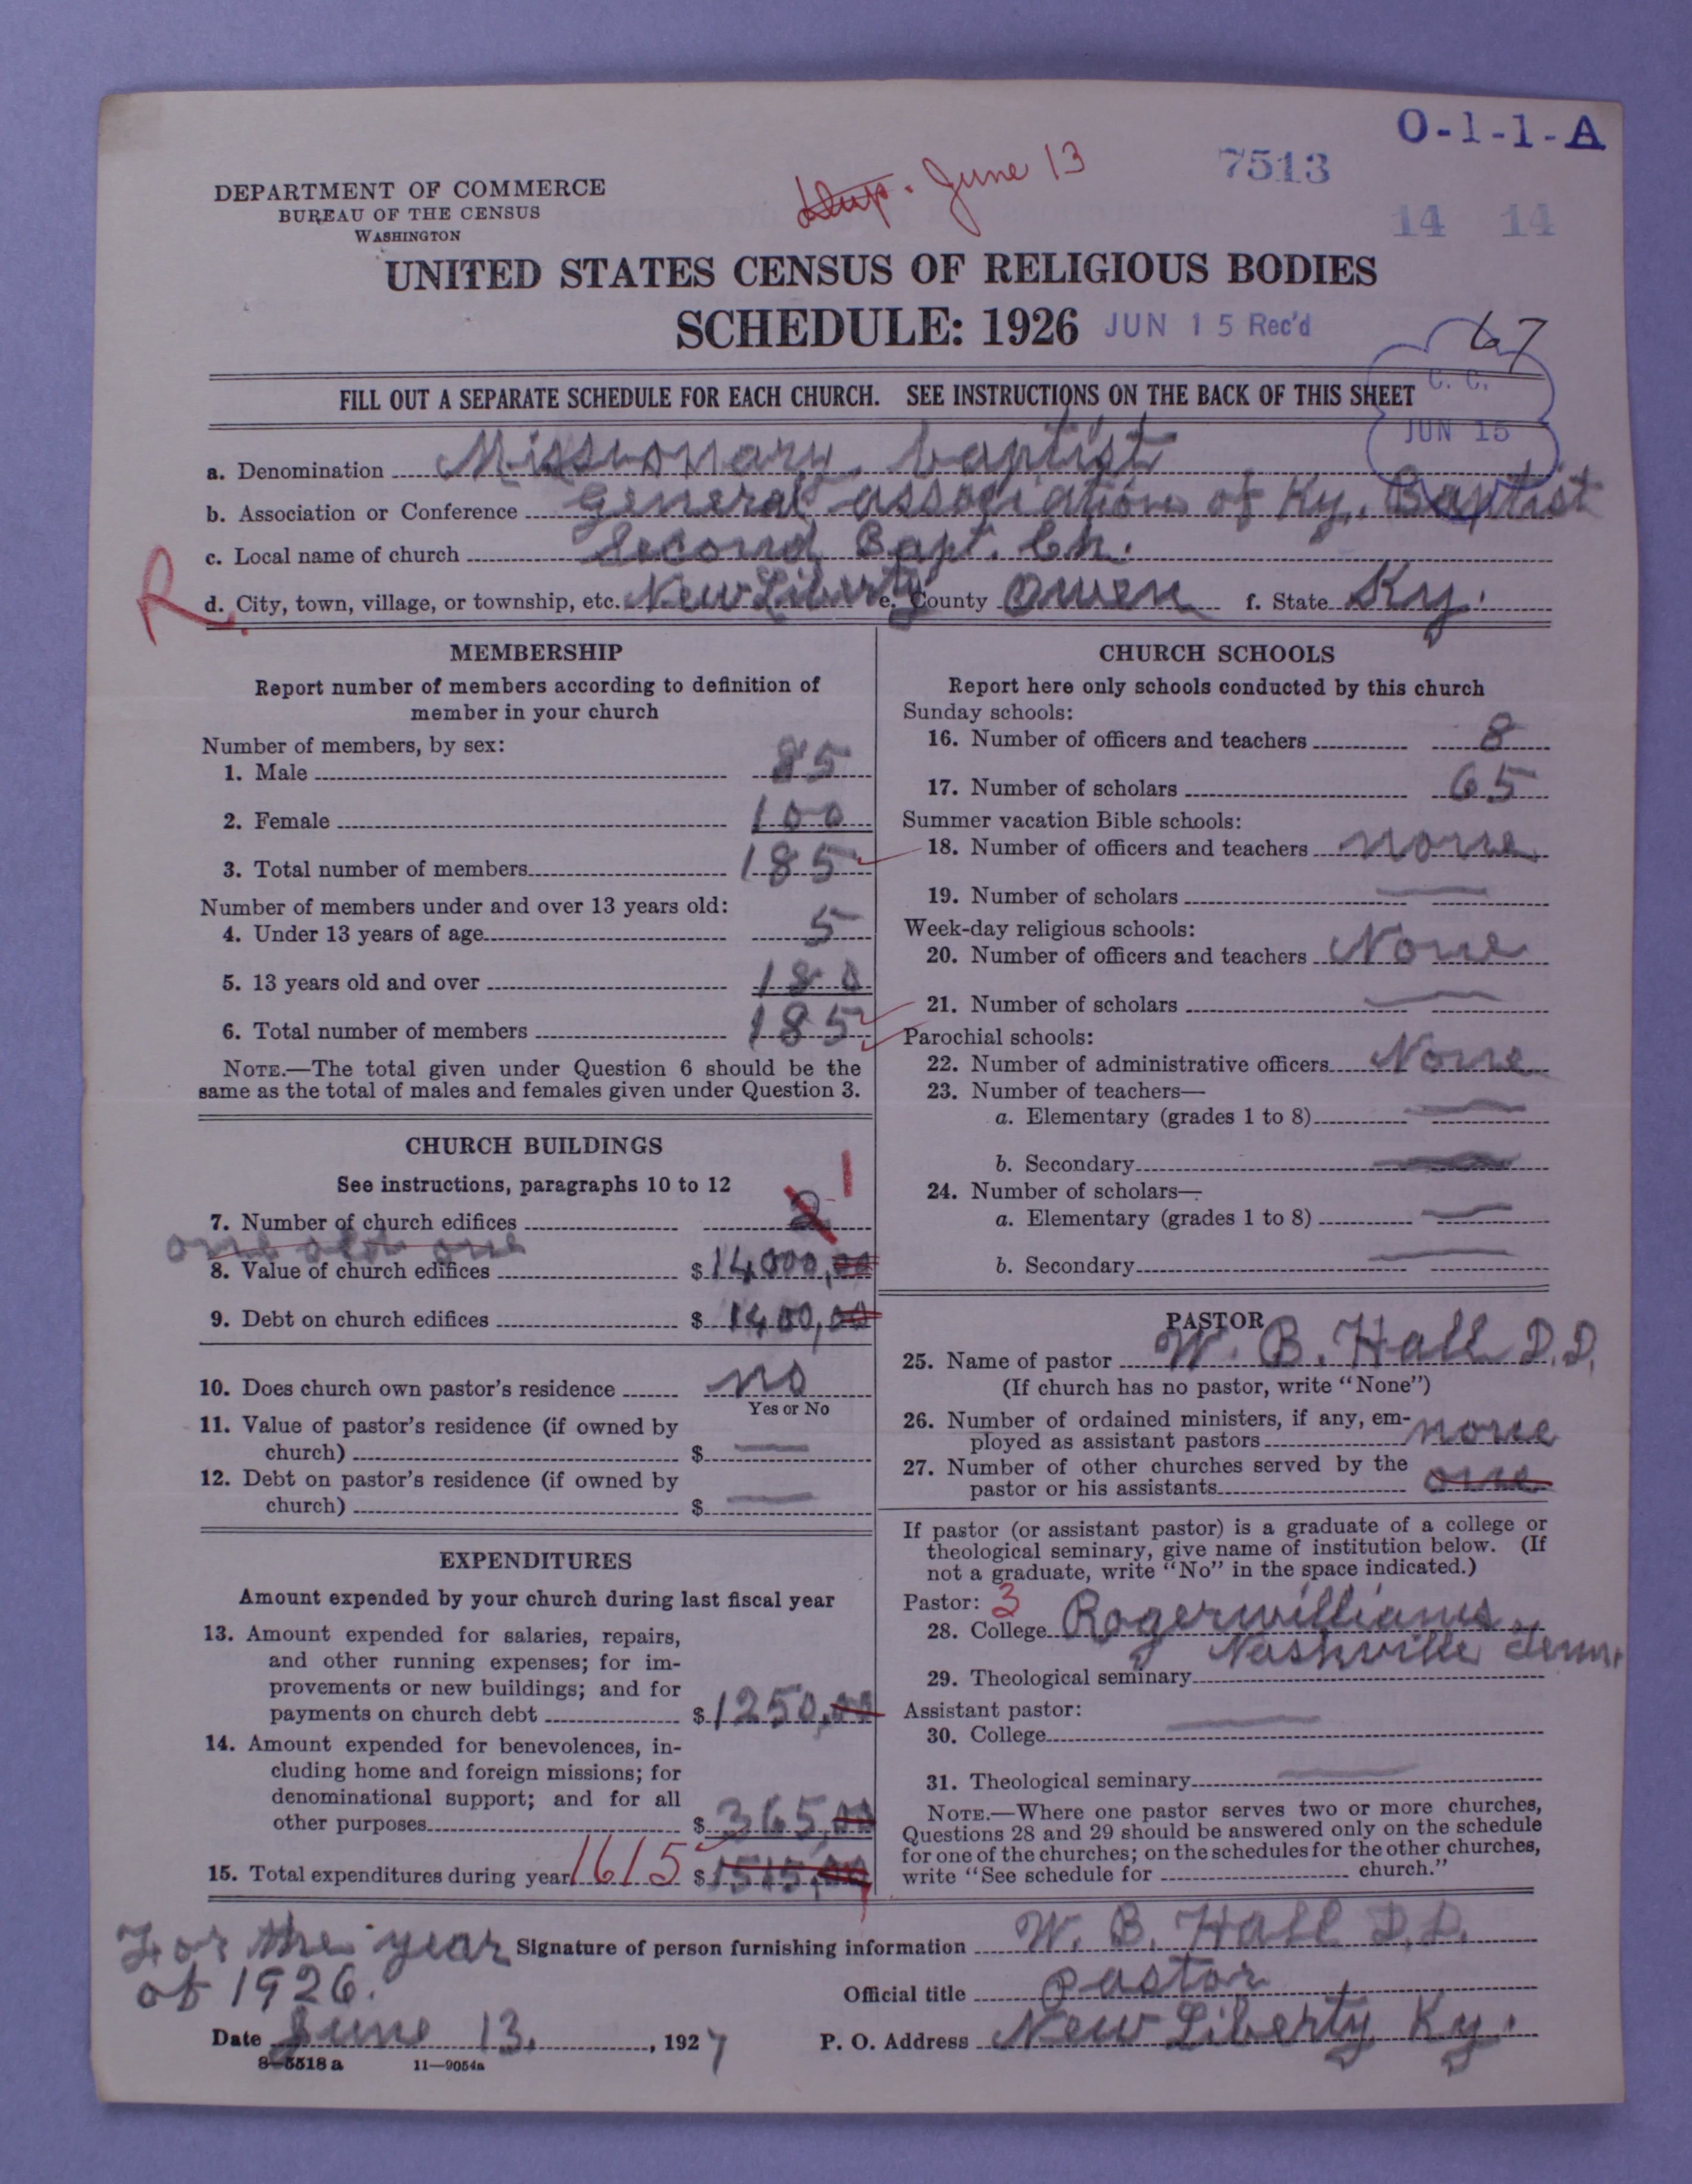 O-1-1-A
7513
Dup. June 13
14 14
DEPARTMENT OF COMMERCE
BUREAU OF THE CENSUS
WASHINGTON
UNITED STATES CENSUS OF RELIGIOUS BODIES
SCHEDULE: 1926 JUN 15 Rec'd
67
C. C.
JUN 15
FILL OUT A SEPARATE SCHEDULE FOR EACH CHURCH. SEE INSTRUCTIONS ON THE BACK OF THIS SHEET
a. Denomination Missionary baptist
b. Association or Conference General association of Ky. Baptist
c. Local name of church Second Bapt. Ch.
R. d. City, town, village, or township, etc. New Liberty e. County Owen f. State Ky.
MEMBERSHIP
Report number of members according to definition of
member in your church
Number of members, by sex:
1. Male 85
2. Female 100
3. Total number of members 185
Number of members under and over 13 years old:
4. Under 13 years of age 5
5. 13 years old and over 180
6. Total number of members 185
NOTE.—The total given under Question 6 should be the
same as the total of males and females given under Question 3.
CHURCH BUILDINGS
See instructions, paragraphs 10 to 12
7. Number of church edifices 2 1
one old one
8. Value of church edifices $ 14000,00
9. Debt on church edifices $ 1400,00
10. Does church own pastor's residence no
Yes or No
11. Value of pastor's residence (if owned by
church) $ —
12. Debt on pastor's residence (if owned by
church) $ —
EXPENDITURES
Amount expended by your church during last fiscal year
13. Amount expended for salaries, repairs,
and other running expenses; for im-
provements or new buildings; and for
payments on church debt $ 1250,00
14. Amount expended for benevolences, in-
cluding home and foreign missions; for
denominational support; and for all
other purposes $ 365,00
15. Total expenditures during year 1615 $ 1515,00
CHURCH SCHOOLS
Report here only schools conducted by this church
Sunday schools:
16. Number of officers and teachers 8
17. Number of scholars 65
Summer vacation Bible schools:
18. Number of officers and teachers none
19. Number of scholars —
Week-day religious schools:
20. Number of officers and teachers None
21. Number of scholars —
Parochial schools:
22. Number of administrative officers None
23. Number of teachers—
a. Elementary (grades 1 to 8) —
b. Secondary —
24. Number of scholars—
a. Elementary (grades 1 to 8) —
b. Secondary —
PASTOR
25. Name of pastor W. B. Hall D.D.
(If church has no pastor, write "None")
26. Number of ordained ministers, if any, em-
ployed as assistant pastors none
27. Number of other churches served by the
pastor or his assistants one
If pastor (or assistant pastor) is a graduate of a college or
theological seminary, give name of institution below. (If
not a graduate, write "No" in the space indicated.)
Pastor: 3
28. College Rogerwilliams
Nashville Tenn.
29. Theological seminary
Assistant pastor:
30. College —
31. Theological seminary —
NOTE.—Where one pastor serves two or more churches,
Questions 28 and 29 should be answered only on the schedule
for one of the churches; on the schedules for the other churches,
write "See schedule for church."
For the year
of 1926.
Signature of person furnishing information W. B. Hall D.D.
Official title pastor
Date June 13, 1927 P. O. Address New Liberty Ky.
8-5518 a 11—9054a